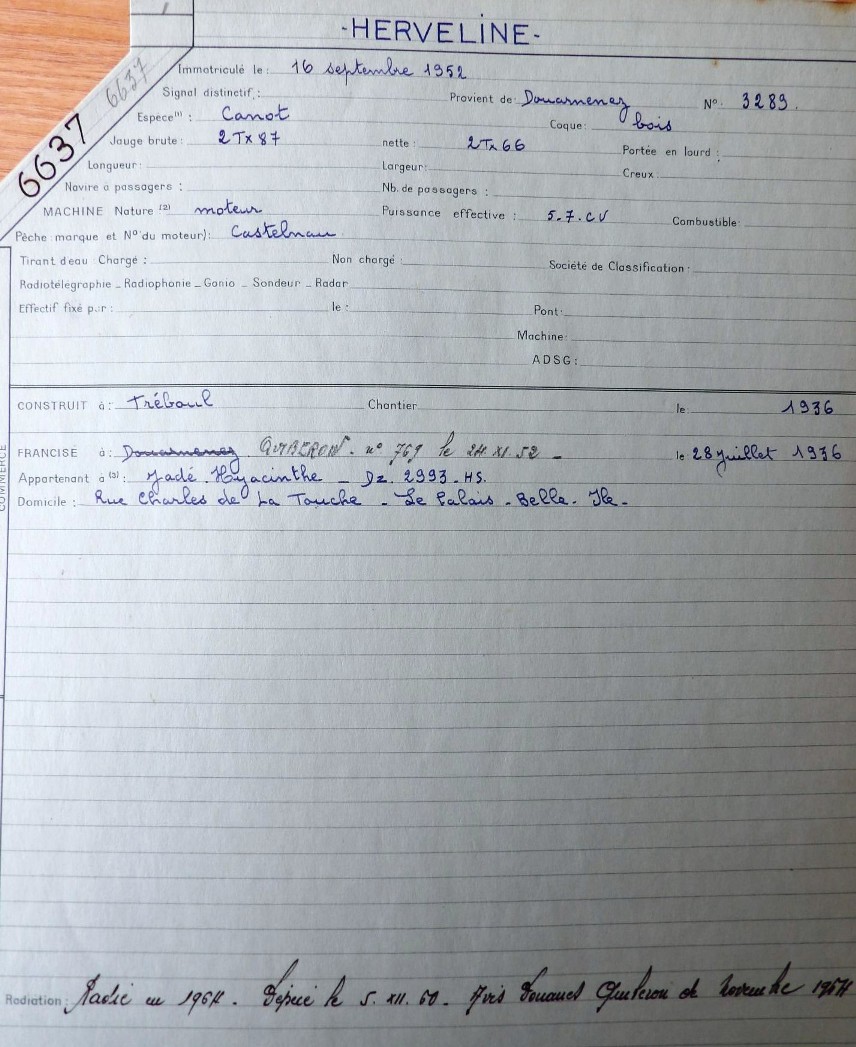 -HERVELINE-
6637 6637
Immatriculé le : 16 septembre 1952
Signal distinctif : Provient de : Douarnenez N° 3289.
Espèce (1) : Canot Coque : bois
Jauge brute : 2 Tx 87 nette : 2 Tx 66 Portée en lourd :
Longueur : Largeur : Creux
Navire à passagers : Nb. de passagers :
MACHINE Nature (2) moteur Puissance effective : 5-7.CV Combustible
Pêche marque et N° du moteur) : Castelnau
Tirant d'eau Chargé : Non chargé : Société de Classification :
Radiotélégraphie _ Radiophonie _ Gonio _ Sondeur _ Radar
Effectif fixé par : le : Pont :
Machine :
ADSG :
CONSTRUIT à : Tréboul Chantier le : 1936
FRANCISÉ à : Douarnenez QUIBERON. n° 769 le 24.XI.52 _ le 28 juillet 1936
Appartenant à (3) : Jadé Hyacinthe _ Dz. 2993 _ HS.
Domicile : Rue Charles de La Touche _ Le Palais _ Belle _ Ile _
COMMERCE
Radiation : Radié en 1964. Dépecé le 5. XII. 60 _ Avis Douanes Quiberon de novembre 1964